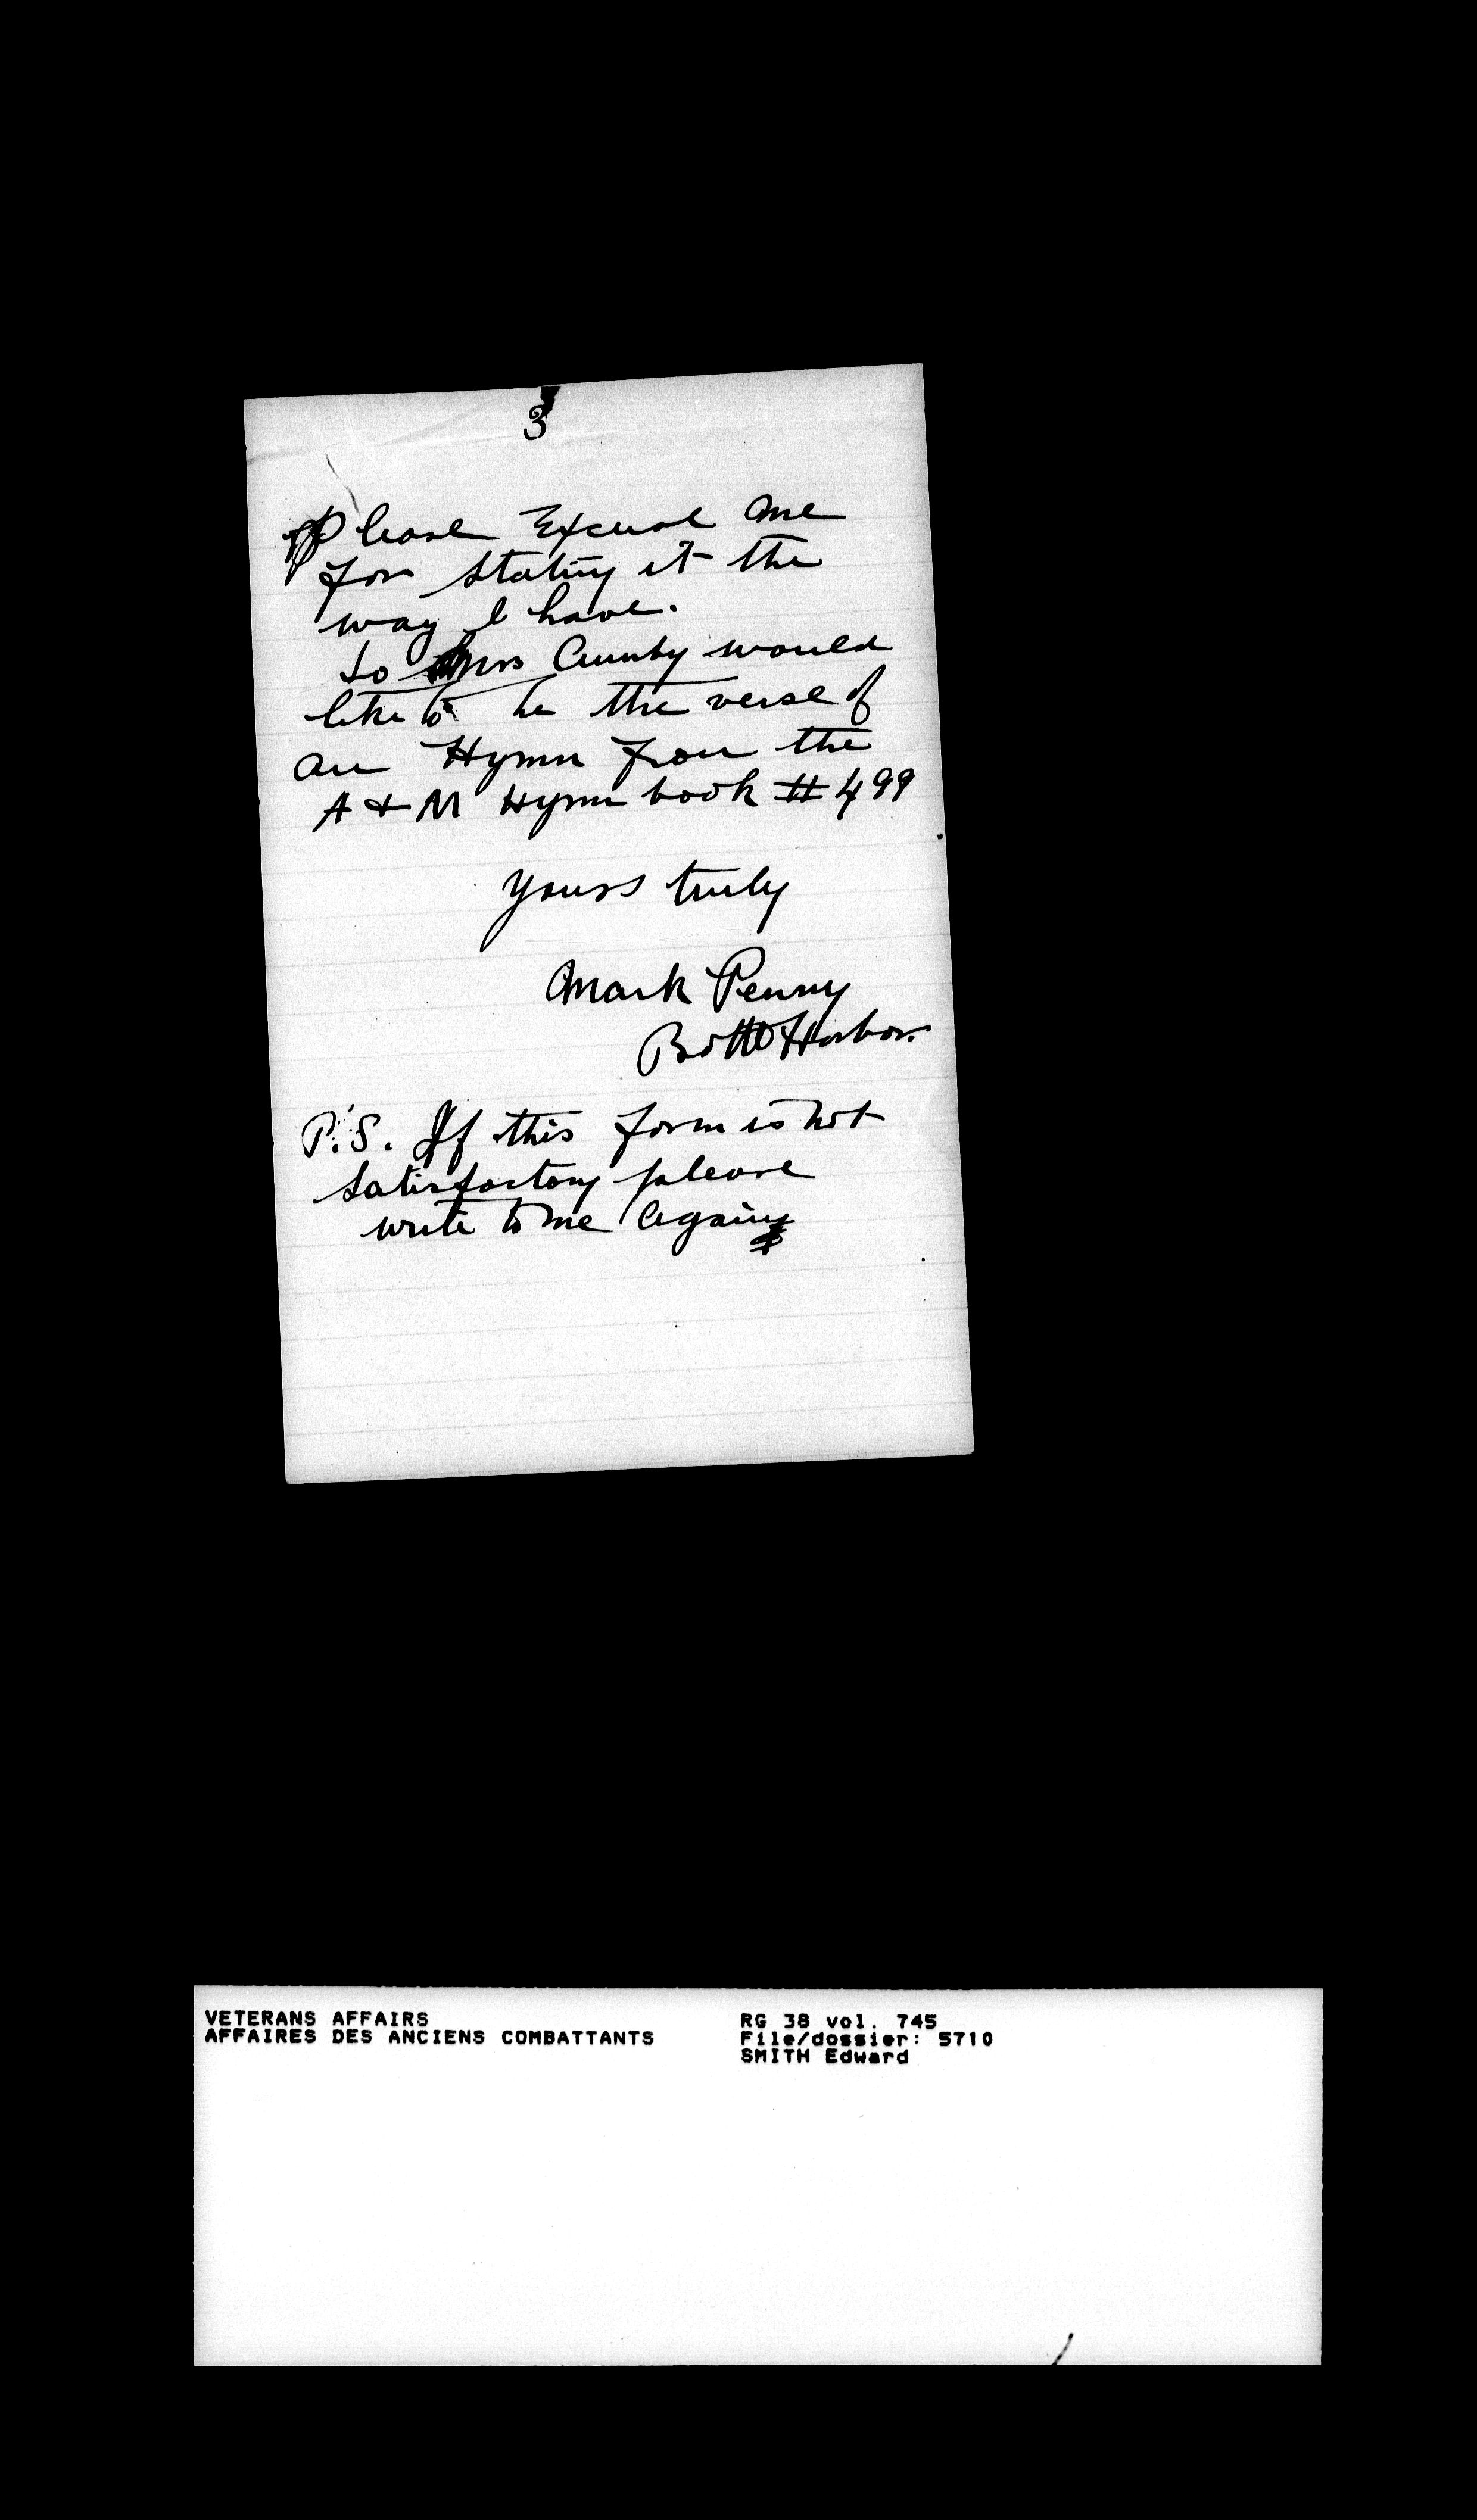 3
Please Excuse me
for stating it the
way I have.
So Mrs would
like to be the verse of
an Hymn from the
A + M Hymn book # 499
Yours truly
Mark Penny
Harbor.
P.S. If this form is not
satisfactory please
write to me again
VETERANS AFFAIRS
AFFAIRES DES ANCIENS COMBATTANTS
RG 38 vol. 745
File/dossier: 5710
SMITH Edward